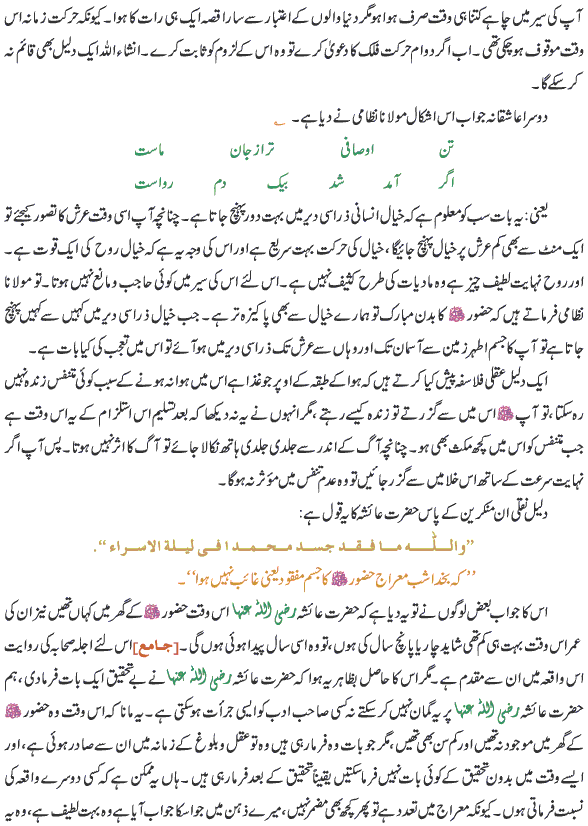 آپ کی سیر میں چاہے کتنا ہی وقت صرف ہوا ہو مگر دنیا والوں کے اعتبار سے سارا قصہ ایک ہی رات کا ہوا۔ کیونکہ حرکت زمانہ اس
وقت موقوف ہو چکی تھی۔ اب اگر دوام حرکت فلک کا دعویٰ کرے تو وہ اس کے لزوم کو ثابت کرے۔ انشاء اللہ ایک دلیل بھی قائم نہ
کر سکے گا۔
دوسرا عاشقانہ جواب اس اشکال مولانا نظامی نے دیا ہے۔
تن اوصافی تراز جان ماست
اگر آمد شد بیک دم رواست
یعنی: یہ بات سب کو معلوم ہے کہ خیال انسانی ذرا سی دیر میں بہت دور پہنچ جاتا ہے۔ چنانچہ آپ اسی وقت عرش کا تصور کیجئے تو
ایک منٹ سے بھی کم عرش پر خیال پہنچ جائیگا، خیال کی حرکت بہت سریع ہے اور اس کی وجہ یہ ہے کہ خیال روح کی ایک قوت ہے۔
اور روح نہایت لطیف چیز ہے وہ مادیات کی طرح کثیف نہیں ہے۔ اس لئے اس کی سیر میں کوئی حاجب و مانع نہیں ہوتا۔ تو مولانا
نظامی فرماتے ہیں کہ حضور ﷺ کا بدن مبارک تو ہمارے خیال سے بھی پاکیزہ تر ہے۔ جب خیال ذرا سی دیر میں کہیں سے کہیں پہنچ
جاتا ہے تو آپ کا جسم اطہر زمین سے آسمان تک اور وہاں سے عرش تک ذرا سی دیر میں ہو آئے تو اس میں تعجب کی کیا بات ہے۔
ایک دلیل عقلی فلاسفہ پیش کیا کرتے ہیں کہ ہوا کے طبقہ کے اوپر جو خلا ہے اس میں ہوا نہ ہونے کے سبب کوئی متنفس زندہ نہیں
رہ سکتا، تو آپ ﷺ اس میں سے گزرتے تو زندہ کیسے رہتے، مگر انہوں نے یہ نہ دیکھا کہ بعد تسلیم اس استلزام کے یہ اس وقت ہے
جب متنفس کو اس میں کچھ مکث بھی ہو۔ چنانچہ آگ کے اندر سے جلدی جلدی ہاتھ نکالا جائے تو آگ کا اثر نہیں ہوتا۔ پس آپ اگر
نہایت سرعت کے ساتھ اس خلا میں سے گزر جائیں تو وہ عدم تنفس میں مؤثر نہ ہوگا۔
دلیل نقلی ان منکرین کے پاس حضرت عائشہ کا یہ قول ہے:
”واللہ ما فقد جسد محمد افی لیلۃ الاسراء“.
”کہ بخدا شب معراج حضور ﷺ کا جسم مفقود یعنی غائب نہیں ہوا“۔
اس کا جواب بعض لوگوں نے تو یہ دیا ہے کہ حضرت عائشہ رضی اللہ عنہا اس وقت حضور ﷺ کے گھر میں کہاں تھیں نیز ان کی
عمر اس وقت بہت ہی کم تھی شاید چار یا پانچ سال کی ہوں، تو وہ اسی سال پیدا ہوئی ہوں گی۔ [جامع] اس لئے اجلہ صحابہ کی روایت
اس واقعہ میں ان سے مقدم ہے۔ مگر اس کا حاصل بظاہر یہ ہوا کہ حضرت عائشہ رضی اللہ عنہا نے بے تحقیق ایک بات فرمادی، ہم
حضرت عائشہ رضی اللہ عنہا پر یہ گمان نہیں کر سکتے نہ کسی صاحب ادب کو ایسی جرأت ہو سکتی ہے۔ یہ مانا کہ اس وقت وہ حضور ﷺ
کے گھر میں موجود نہ تھیں اور کم سن بھی تھیں، مگر جو بات وہ فرما رہی ہیں وہ تو عقل و بلوغ کے زمانہ میں ان سے صادر ہوئی ہے، اور
ایسے وقت میں بدون تحقیق کے کوئی بات نہیں فرما سکتیں یقیناً تحقیق کے بعد فرما رہی ہیں۔ ہاں یہ ممکن ہے کہ کسی دوسرے واقعہ کی
نسبت فرماتی ہوں۔ کیونکہ معراج میں تعدد ہے تو پھر کچھ بھی مضر نہیں، میرے ذہن میں جو اس کا جواب آیا ہے وہ بہت لطیف ہے، وہ یہ